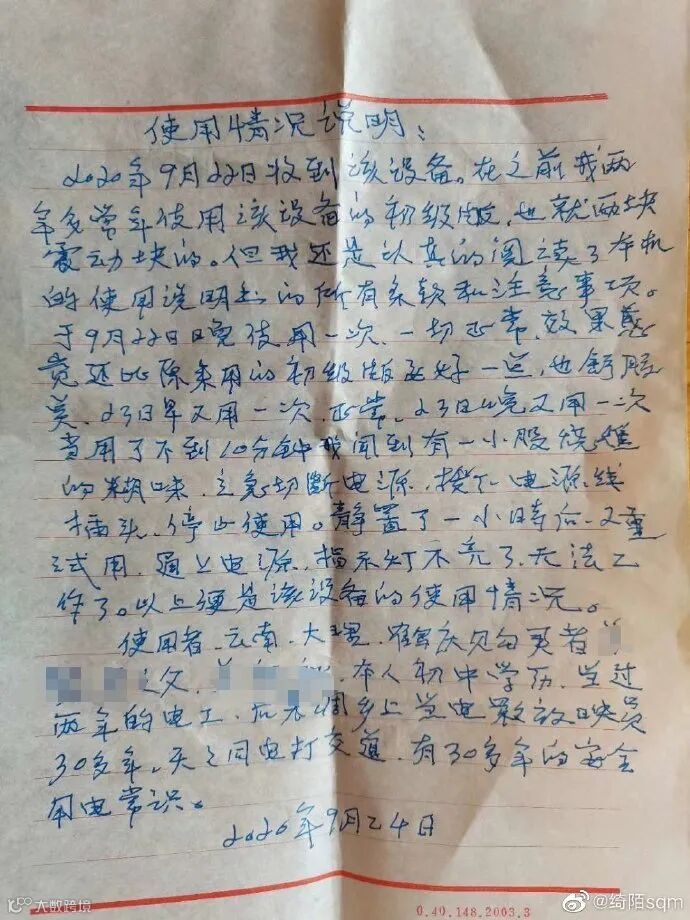 使用情况说明：
2020年9月22日收到该设备。在之前我两
年多常年使用该设备的初级版，也就两块
震动块的。但我还是认真的阅读了本机
的使用说明书的所有条款和注意事项。
于9月22日晚使用一次，一切正常，效果感
觉还比原来用的初级版还好一点，也舒服
些。23日早又用一次，正常，23日晚又用一次
当用了不到10分钟我闻到有一小股烧焦
的糊味，立急切断电源，拔下电源线
插头，停止使用。静置了一小时后，又重
试用，通上电源，指示灯不亮了，无法工
作了。以上便是该设备的使用情况。
使用者，云南，大理，鹤庆购买者
之父，本人初中学历，当过
两年的电工，后来调乡上当电影放映员
30多年，天天同电打交道，有30多年的安全
用电常识。
2020年9月24日
0.40.148.2003.3
大数跨境
@绮陌sqm